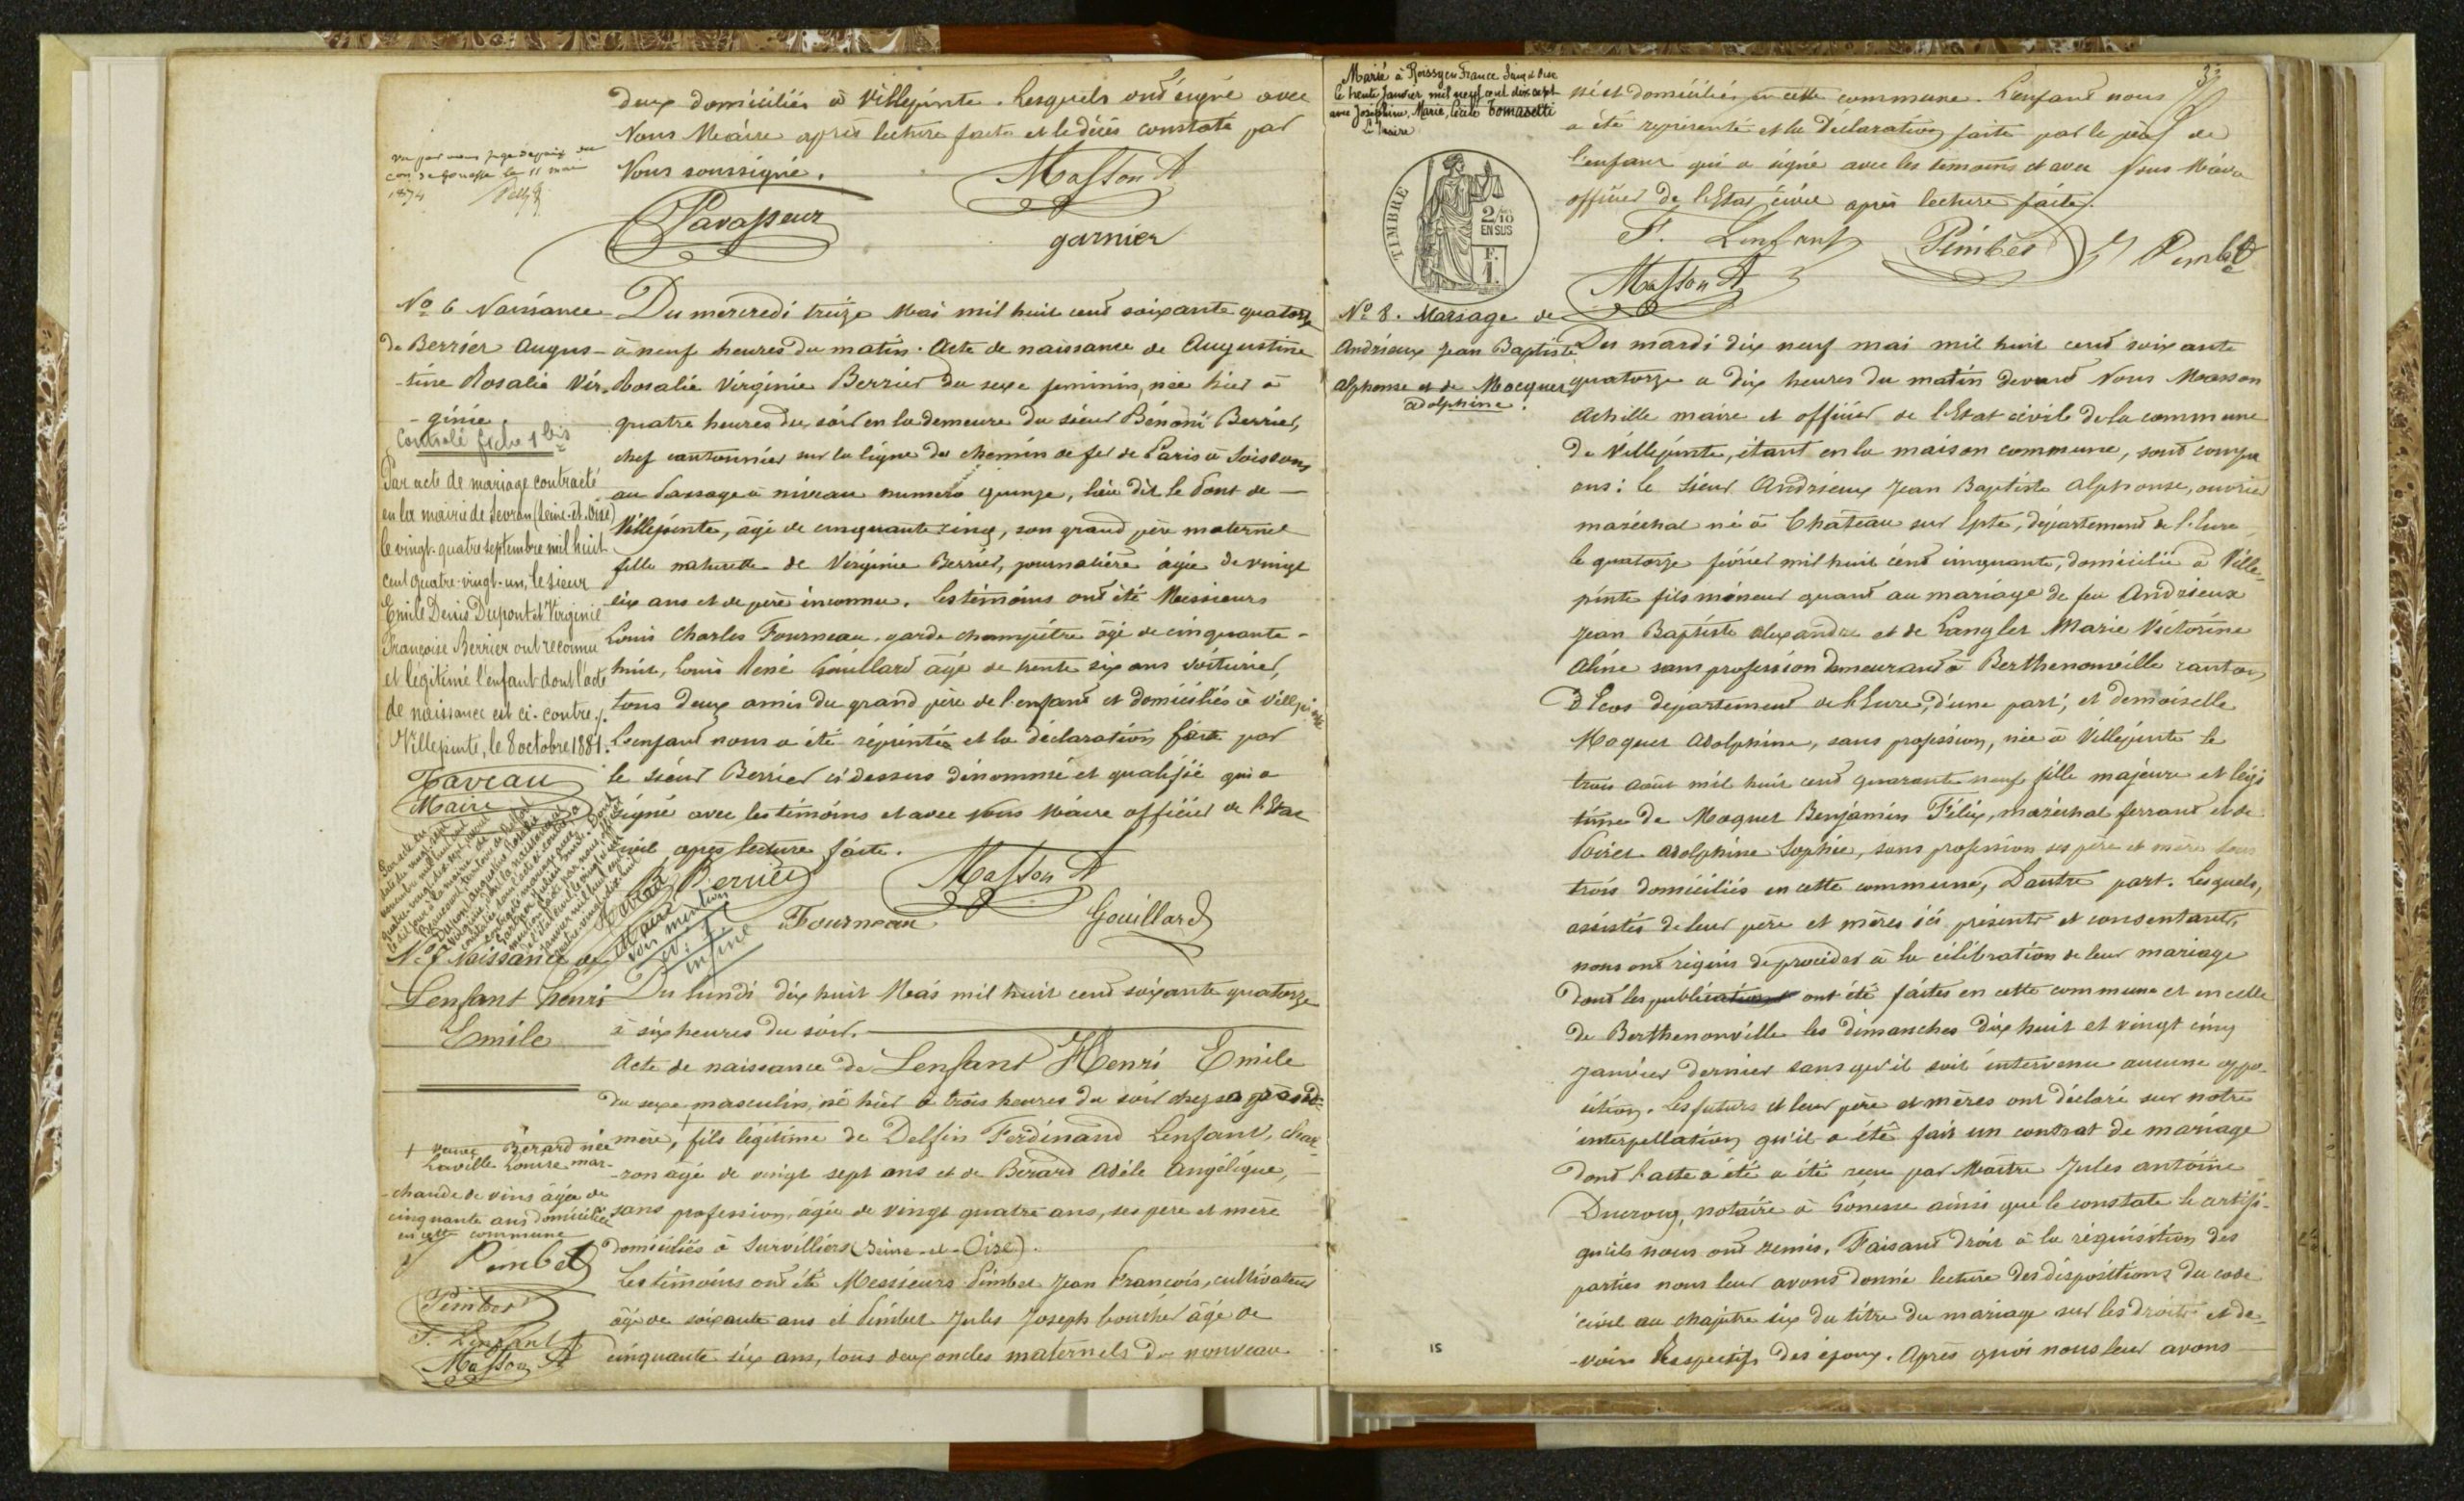 deux domiciliés à Villepinte. Lesquels ont signé avec
Nous Maire après lecture faite et le décès constaté par
Nous soussigné.
Masson A
Pavasseur
garnier
vu par nous juge de paix du
con de gonesse le 11 mai
1874
No 6 Naissance
de Berrier Augus-
-tine Rosalie Vir-
-ginie
Controlé fiche 1 bis
Par acte de mariage contracté
en la mairie de Sevran (Seine-et-Oise)
le vingt-quatre septembre mil huit
cent quatre-vingt-un, le sieur
Emile Denis Dupont et Virginie
Françoise Berrier ont reconnu
et légitimé l'enfant dont l'acte
de naissance est ci-contre.
Villepinte, le 8 octobre 1881.
Taveau
Maire
Du mercredi treize Mai mil huit cent soixante quatorze
à neuf heures du matin. Acte de naissance de Augustine
Rosalie Virginie Berrier du sexe feminin, née hier à
quatre heures du soir en la demeure du sieur Bénoni Berrier,
chef cantonnier sur la ligne du chemin de fer de Paris à Soissons
au Passage à niveau numero quinze, lieu dit le Pont de
Villepinte, âgé de cinquante cinq, son grand père maternel
fille naturelle de Virginie Berrier, journalière âgée de vingt
six ans et de père inconnu. Les témoins ont été Messieurs
Louis Charles Fourneau, garde champêtre âgé de cinquante-
huit, Louis René Gouillard âgé de trente six ans voiturier,
tous deux amis du grand père de l'enfant et domiciliés à Villepinte
L'enfant nous a été réprésentée et la déclaration faite par
le sieur Berrier ci dessus dénommé et qualifié qui a
signé avec les témoins et avec Nous Maire officier de l'Etat
civil après lecture faite.
B Berrier
Masson A
Fourneau
Gouillard
Maire
voir mention
in fine
No 7 Naissance de
Lenfant Henri
Emile
Du lundi dix huit Mai mil huit cent soixante quatorze
à six heures du soir.
Acte de naissance de Lenfant Henri Emile
du sexe masculin, né hier à trois heures du soir chez sa grand
mère, + fils légitime de Delfin Ferdinand Lenfant, char-
-ron âgé de vingt sept ans et de Bérard Adèle Angélique,
sans profession, âgée de vingt quatre ans, ses père et mère
domiciliés à Survilliers (Seine-et-Oise).
Les témoins ont été Messieurs Pimbet Jean François, cultivateur
âgé de soixante ans et Pimbet Jules Joseph boucher âgé de
cinquante six ans, tous deux oncles maternels du nouveau
+ veuve Bérard née
Laville Louise mar-
-chande de vins âgée de
cinquante ans domiciliée
en cette commune
J Pimbet
Pimbet
F. Lenfant
Masson A
Marié à Roissy en France Seine & Oise
le trente Janvier mil neuf cent dix sept
avec Joséphine, Marie, Cécile Tomasetti
Le Maire
TIMBRE
2/10
EN SUS
F.
1.
né et domicilié en cette commune. L'enfant nous
a été représenté et la Déclaration faite par le père de
l'enfant qui a signé avec les témoins et avec Nous Maire
officier de l'Etat civil après lecture faite.
F. Lenfant
Pimbet
J Pimbet
Masson A
No 8. Mariage de
Andrieux Jean Baptiste
Alphonse et de Mocquer
Adolphine.
Du mardi dix neuf mai mil huit cent soixante
quatorze a dix heures du matin devant Nous Masson
Achille maire et officier de l'Etat civil de la commune
de Villepinte, étant en la maison commune, sont compa
rus: le Sieur Andrieux Jean Baptiste Alphonse, ouvrier
maréchal né à Chateau sur Epte, département de l'Eure
le quatorze février mil huit cent cinquante, domicilié à Ville-
pinte fils mineur quant au mariage de feu Andrieux
Jean Baptiste Alexandre et de Langler Marie Victorine
Aline sans profession demeurant à Berthenonville canton
d'Ecos département de l'Eure, d'une part; et demoiselle
Moquer Adolphine, sans profession, née à Villepinte le
trois Août mil huit cent quarante neuf fille majeure et légi
time de Moquer Benjamin Félix, maréchal ferrant et de
Poirer Adolphine Sophie, sans profession ses père et mère tous
trois domiciliés en cette commune, D'autre part. Lesquels,
assistés de leur père et mères ici présents et consentants,
nous ont réquis de procéder à la célébration de leur mariage
dont les publications ont été faites en cette commune et en celle
de Berthenonville les dimanches dix huit et vingt cinq
janvier dernier sans qu'il soit intervenu aucune oppo-
sition. Les futurs et leur père et mères ont déclaré sur notre
interpellation qu'il a été fait un contrat de mariage
dont l'acte a été a été reçu par Maître Jules Antoine
Ducrocq, notaire à Gonesse ainsi que le constate le certifi-
qu'ils nous ont remis. Faisant droit à la réquisition des
parties nous leur avons donné lecture des dispositions du code
civil au chapitre six du titre du mariage sur les droits et de-
-voirs Respectifs des époux. Après quoi nous leur avons
15